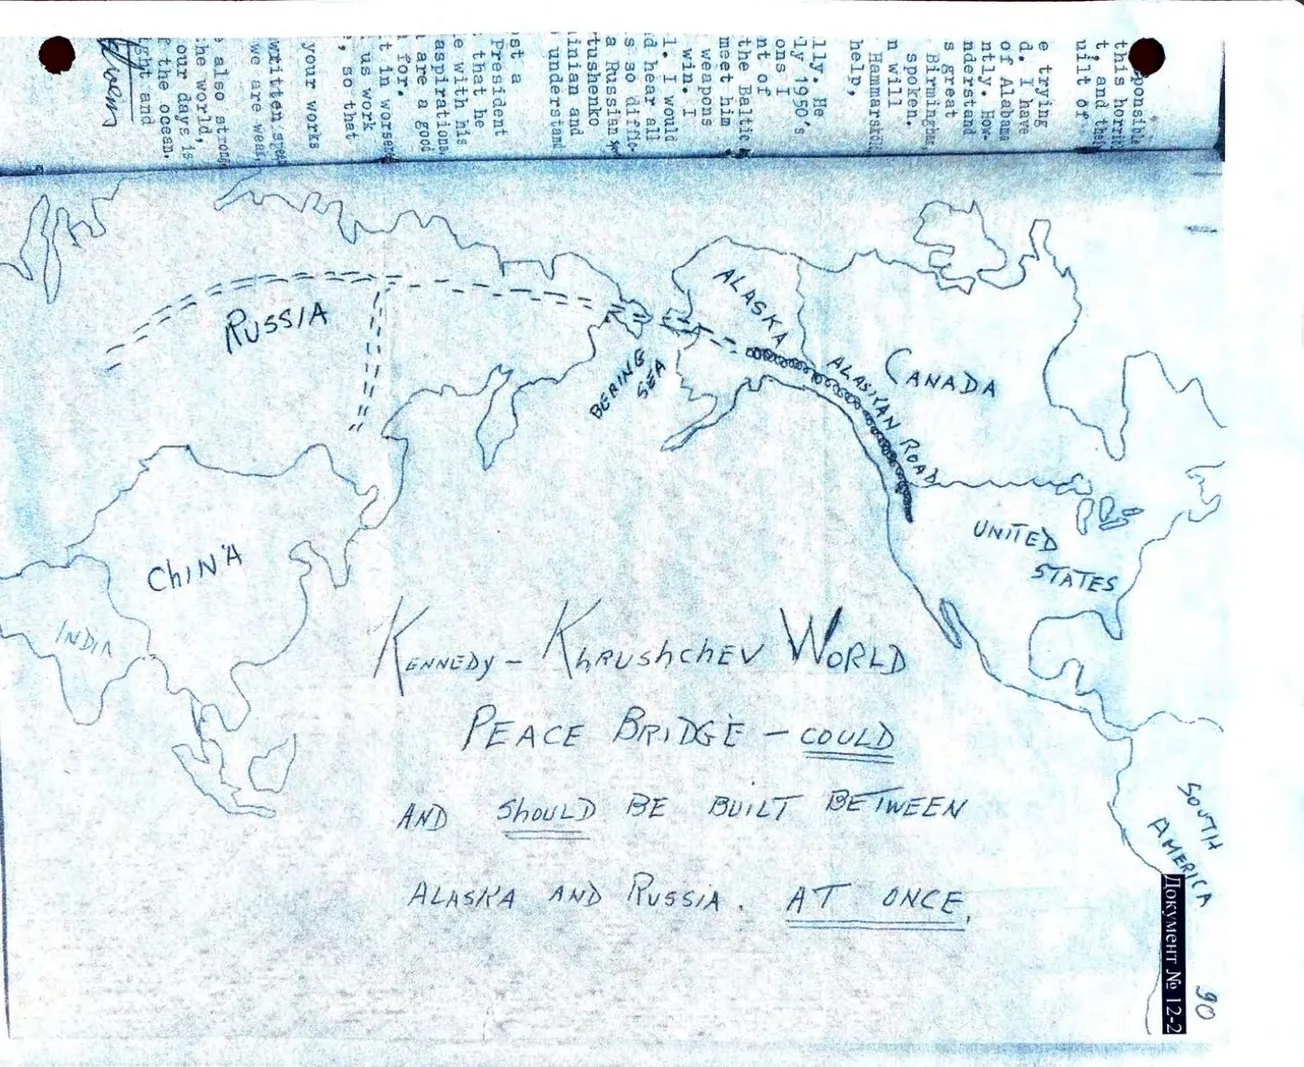 RUSSIA
ALASKA
BERING
SEA
ALASKAN ROAD
CANADA
UNITED
STATES
CHINA
INDIA
SOUTH
AMERICA
KENNEDY – KHRUSHCHEV WORLD
PEACE BRIDGE – COULD
AND SHOULD BE BUILT BETWEEN
ALASKA AND RUSSIA. AT ONCE.
Документ № 12-2
90
ponsible
this horri
t, and tha
uilt of
e trying
d. I have
of Alabama
ntly. How-
nderstand
s great
Birmingham,
spoken.
n will
Hammarskjo
help,
lly. He
ly 1950's
ons I
nt of
the Baltic
meet him
weapons
win. I
l. I would
d hear all
s so diffic-
a Russian
tushenko
inian and
understand
st a
President
that he
e with his
aspirations.
are a good
for.
t in worse
us work
, so that
your works
written spe
we are weak,
also strong
he world,
our days is
the ocean.
ght and